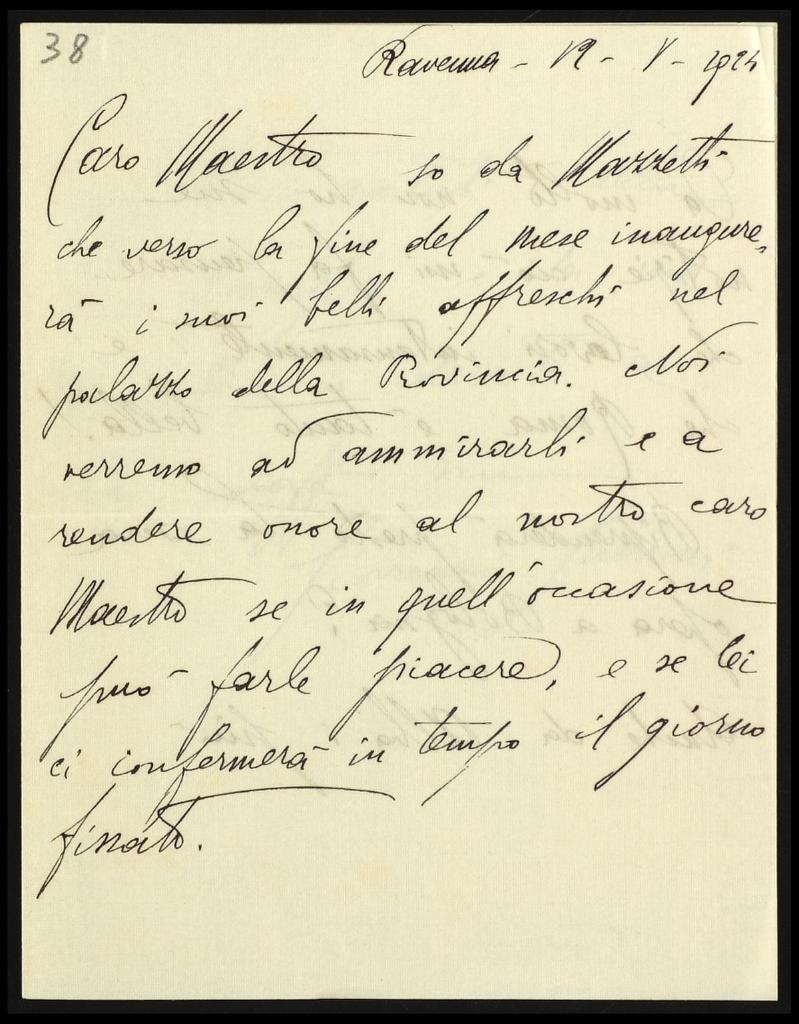 38
Ravenna - 12 - V - 1924
Caro Maestro so da Mazzetti
che verso la fine del mese inaugure,
rà i suoi belli affreschi nel
palazzo della Provincia. Noi
verremo ad ammirarli e a
rendere onore al nostro caro
Maestro se in quell'occasione
può farle piacere, e se lei
ci confermerà in tempo il giorno
fissato.